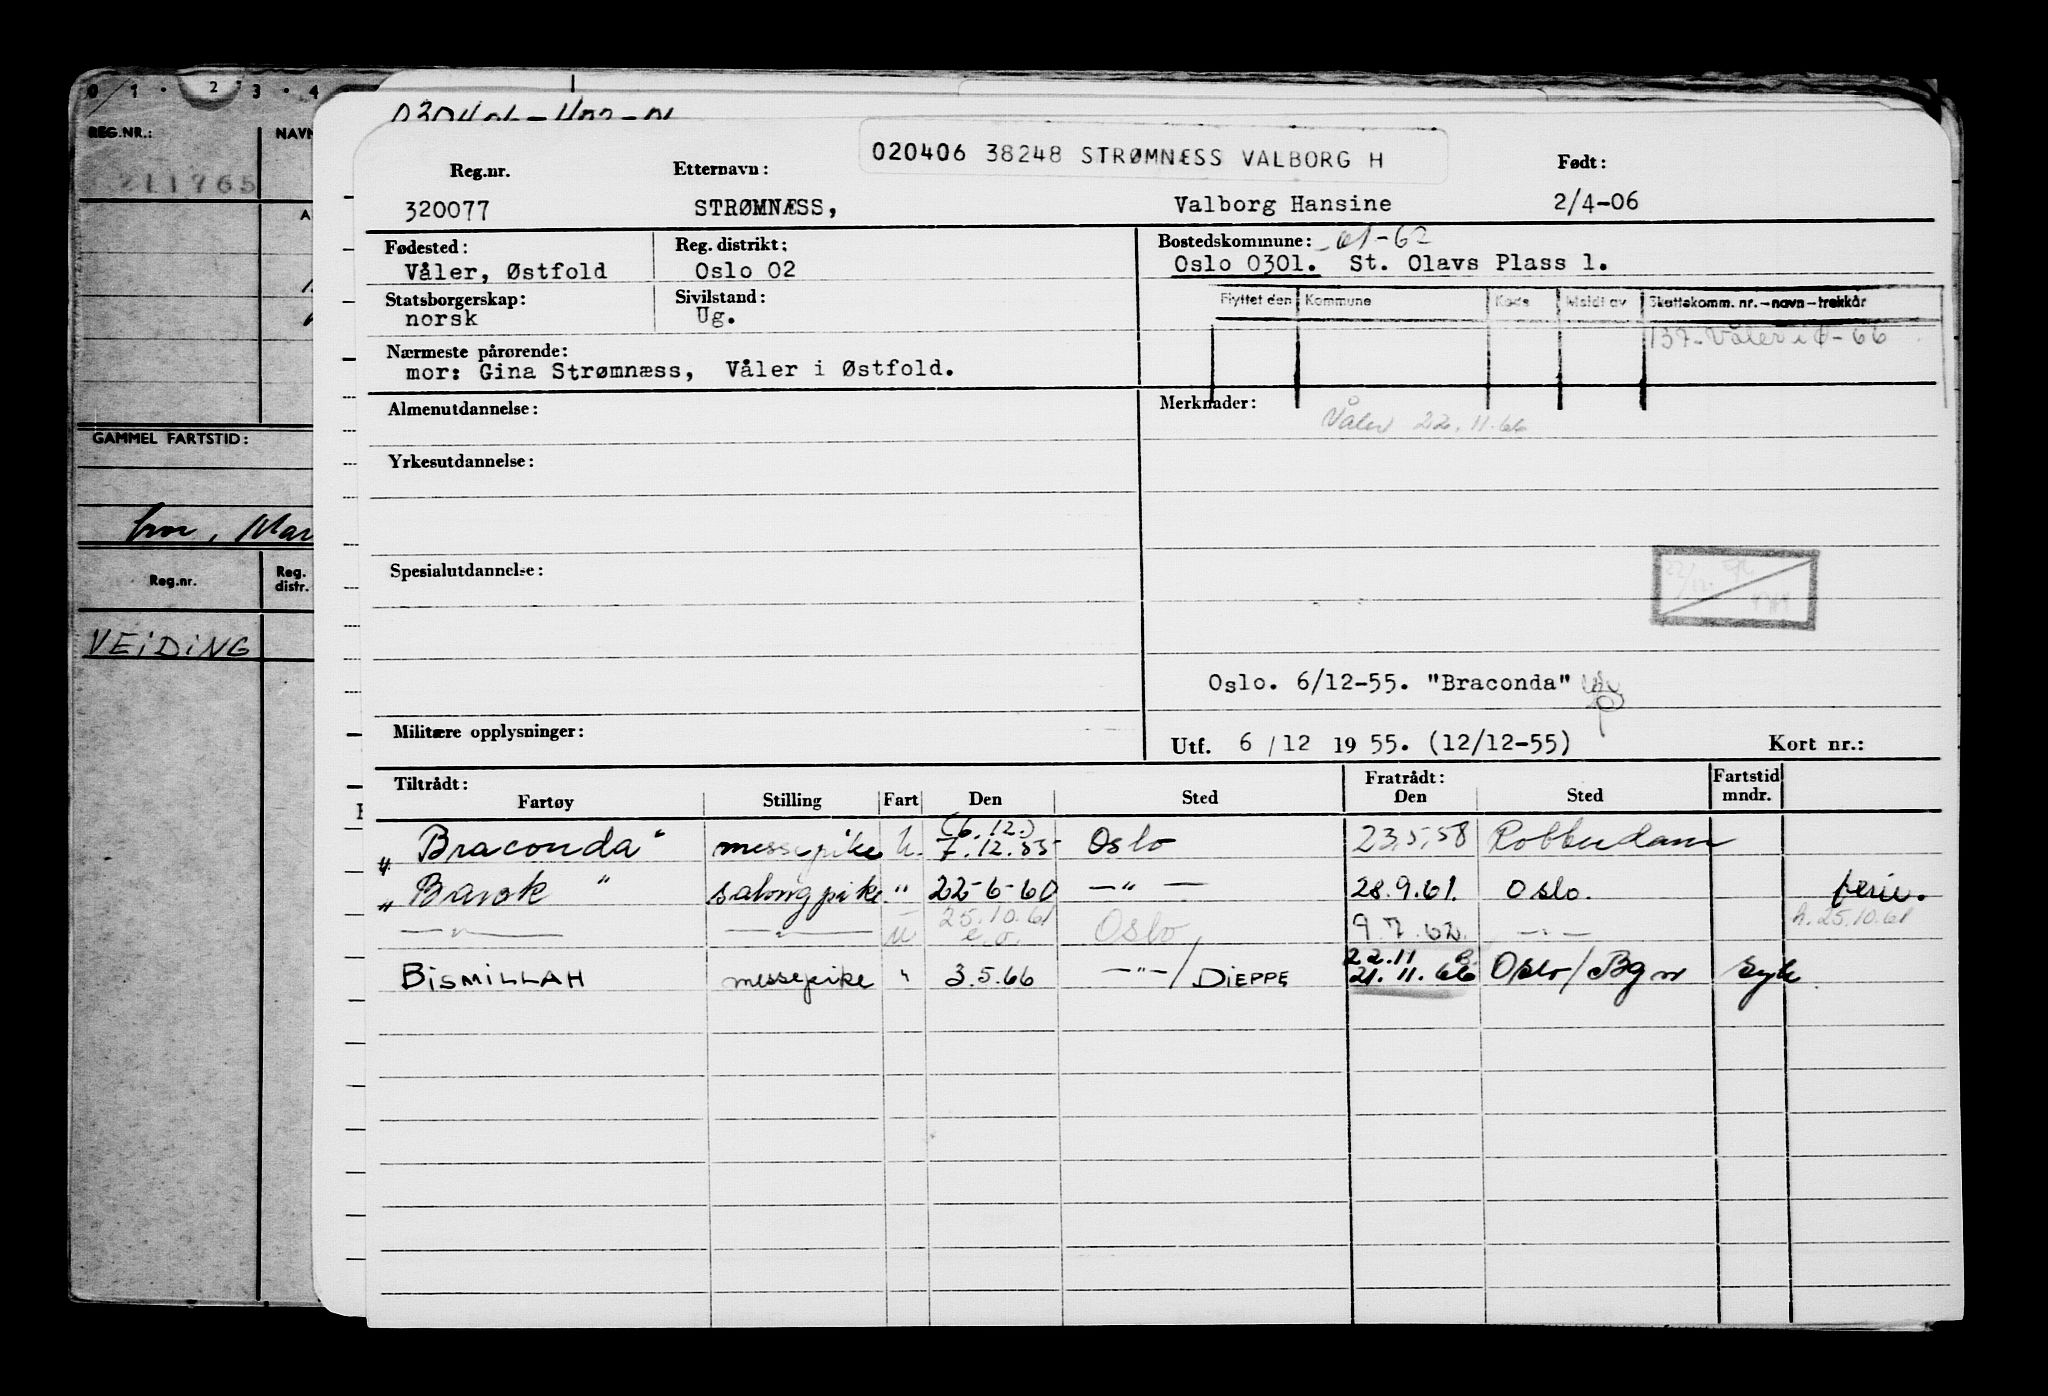 0 1 · 2 · 3 · 4
REG.NR.: NAVN
211765
GAMMEL FARTSTID:
Reg.nr. Reg. distr.
VEIDING
020406 38248 STRØMNÆSS VALBORG H
Reg.nr. Etternavn: Født:
320077 STRØMNÆSS, Valborg Hansine 2/4-06
Fødested: Reg. distrikt: Bostedskommune: -61-62
Våler, Østfold Oslo 02 Oslo 0301. St. Olavs Plass 1.
Statsborgerskap: Sivilstand: Flyttet den Kommune Kode Meldt av Skattekomm. nr.-navn-trekkår
norsk Ug.
137-Våler i Ø-66
Nærmeste pårørende:
mor: Gina Strømnæss, Våler i Østfold.
Almenutdannelse: Merknader:
Våler 22.11.66
Yrkesutdannelse:
Spesialutdannelse:
Oslo. 6/12-55. "Braconda"
Militære opplysninger: Utf. 6/12 1955. (12/12-55) Kort nr.:
Tiltrådt: Fratrådt: Fartstid
Fartøy Stilling Fart Den Sted Den Sted mndr.
(6.12.)
"Braconda" messepike u. 7.12.55 Oslo 23.5.58 Rotterdam
"Barok" salongpike " 22-6-60 —"— 28.9.61. Oslo. ferie.
25.10.61 h. 25.10.61
—"— —"— u e.o. Oslo 9.7.62. —"—
22.11
BISMILLAH messepike " 3.5.66 —"—/DIEPPE 21.11.66 Oslo/Bgn syk